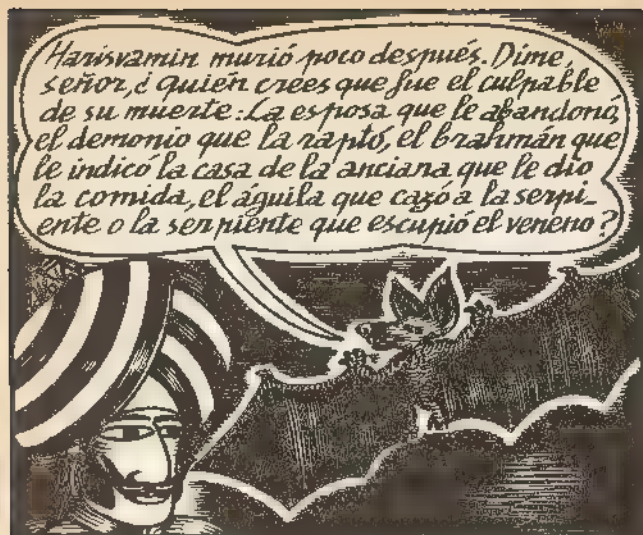 Harisvamin murió poco después. Dime,
señor, ¿quién crees que fue el culpable
de su muerte: La esposa que le abandonó,
el demonio que la raptó, el brahmán que
le indicó la casa de la anciana que le dio
la comida, el águila que cazó a la serpi_
ente o la serpiente que escupió el veneno?